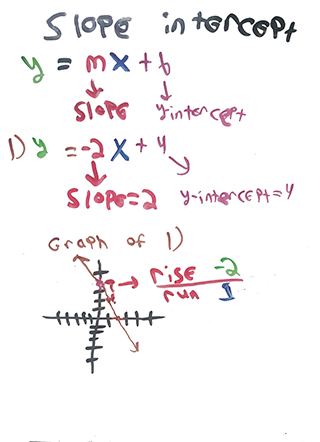 Slope intercept
y = mx + b
slope y-intercept
1) y = -2x + 4
slope = 2 y-intercept = 4
Graph of 1)
rise -2
run 1